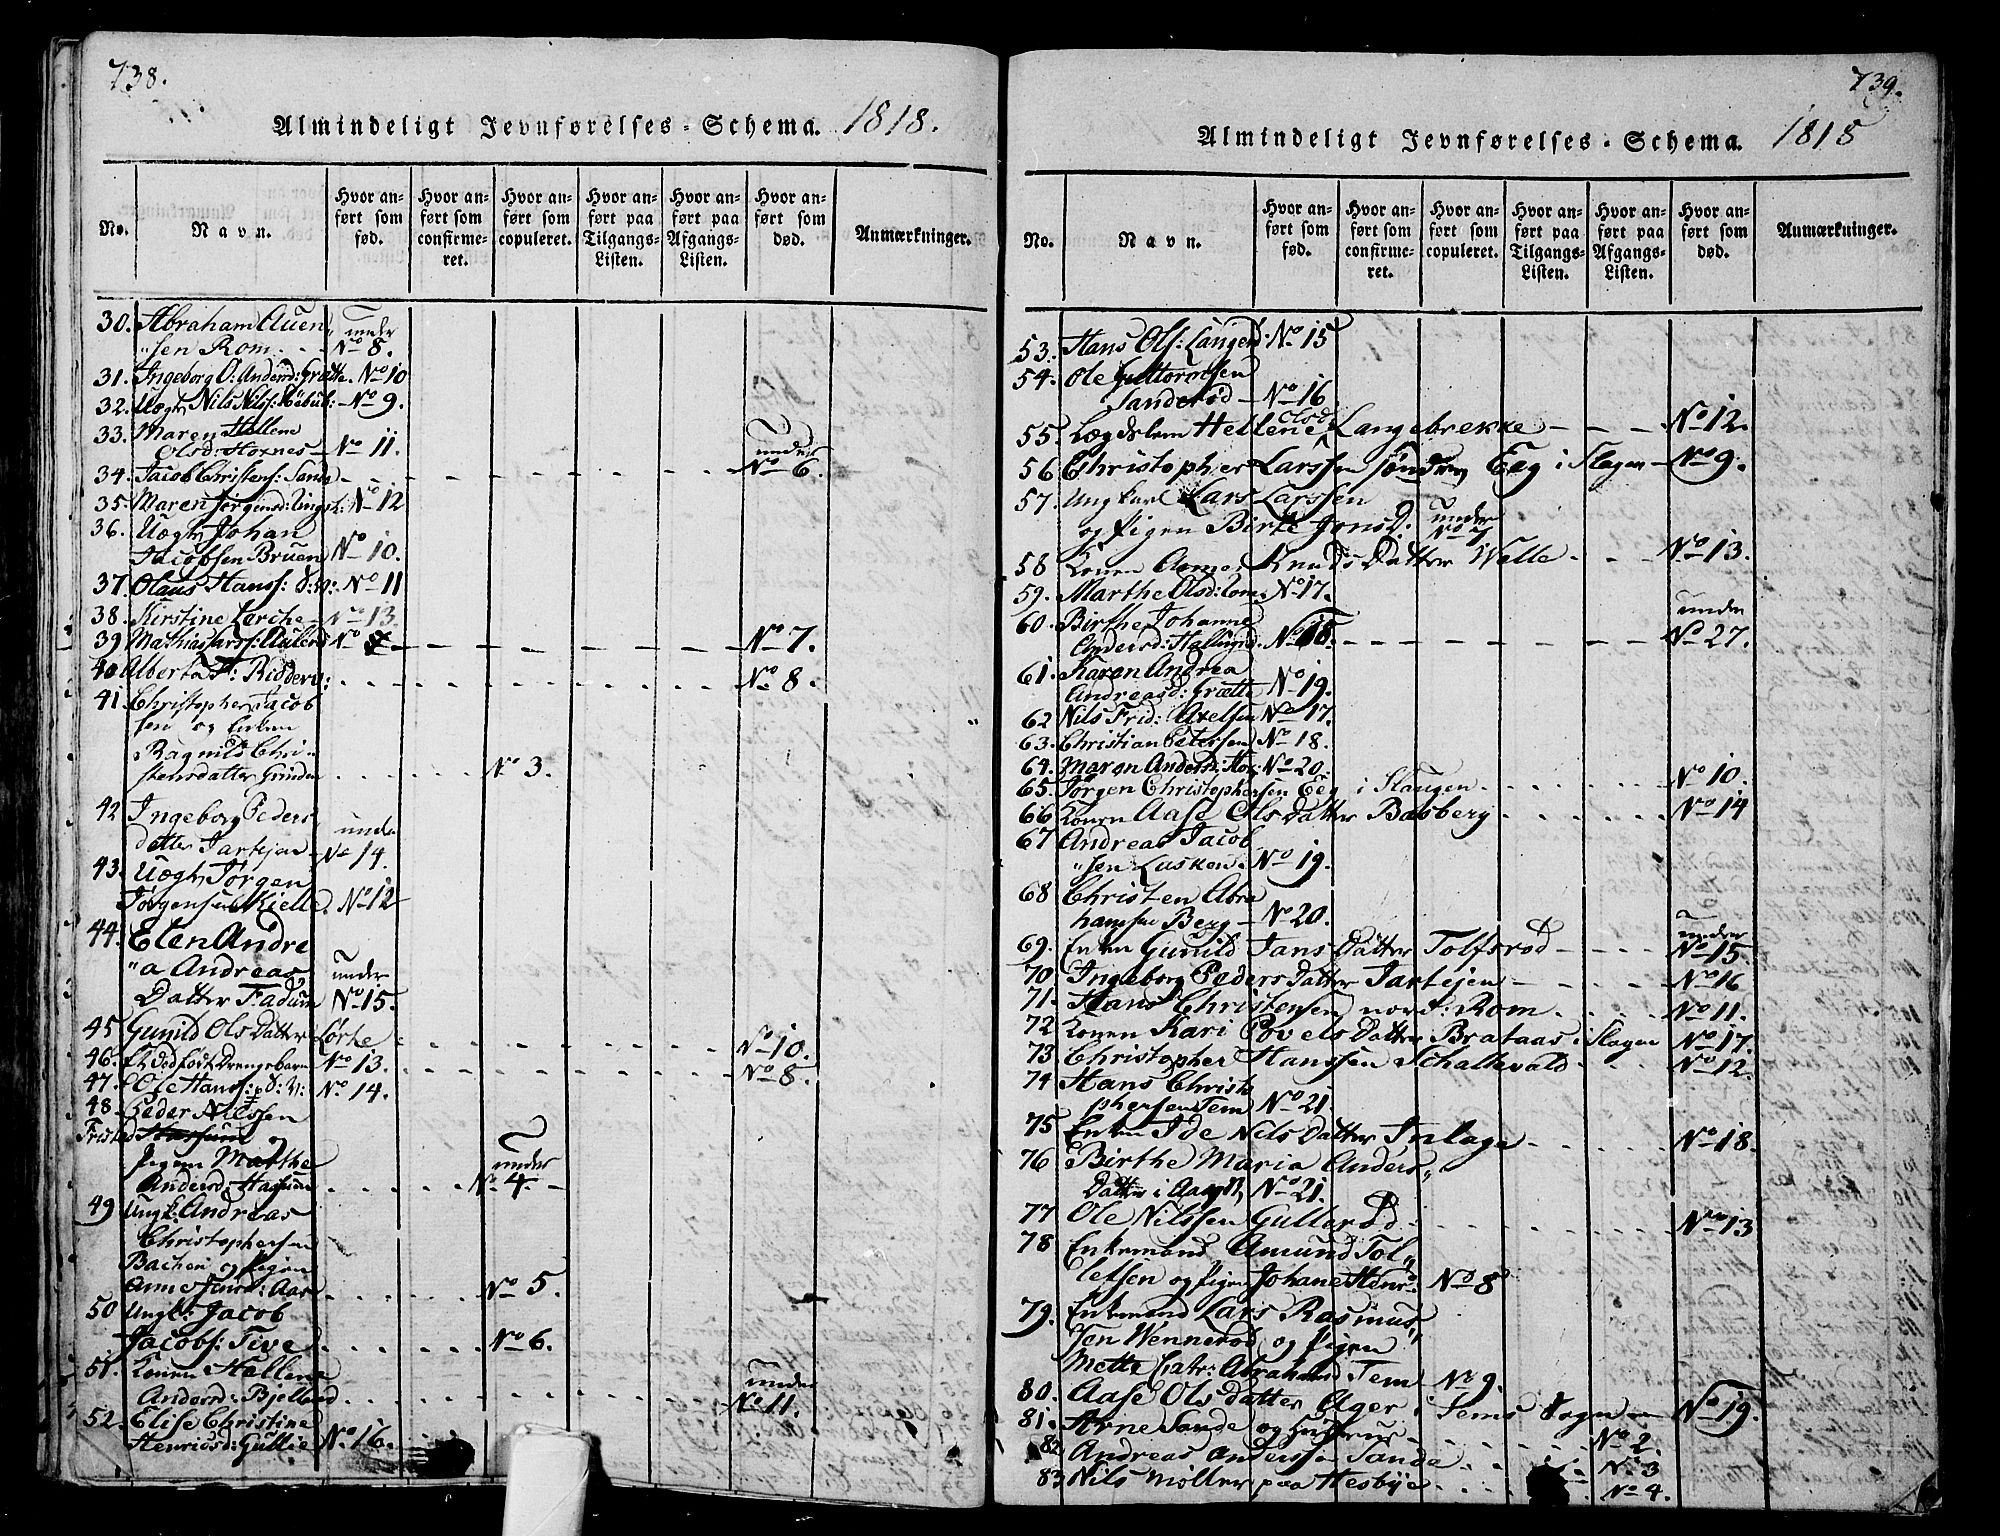 738.
Almindeligt Jevnførelses-Schema. 1818.
No.
Navn.
Hvor anført som fød.
Hvor anført som confirmeret.
Hvor anført som copuleret.
Hvor anført paa Tilgangs-Listen.
Hvor anført paa Afgangs-Listen.
Hvor anført som død.
Anmærkninger.
30. Abraham Auen
"sen Rom. under No 8.
31. Ingeborg O: Andersd: Grætte. No 10
32. Uægt. Nils Nilss: No 9.
33. Maren Hellene
Olsd: Hoxnes No 11.
34. Jacob Christens: Sande under No 6.
35. Maren Jørgensd: No 12
36. Uægt Johan
Jacobsen Bruen No 10.
37. Olaus Hanss: No 11
38. Kirstine Lerche No 13.
39 Mathias Larss: No 8 No 7.
40 Alberta No 8.
41. Christopher Jacob
sen og Enken
Ragnild Chri
stensdatter Grinden No 3.
42 Ingeborg Peders
datter Jartejen under No 14.
43. Uægt Jørgen
Jørgensen Kielle. No 12
44. Elen Andre
"a Andreas
Datter Fadum under No 15.
45 Gunild Ols Datter Lørke No 10.
46. Et Dødfødt Drengebarn No 13. No 8.
47. Ole Hanss: No 14.
48. Peder Nilssen
og
Pigen Marthe
Andersd: Hassum under No 4.
49 Ungk: Andreas
Christophersen
Bachen og Pigen
Anne No 5.
50 Ungk: Jacob
Jacobs: Tive No 6.
51. Konen Hellene
Andersd: Bjelland under No 11.
52. Elise Christine
Henrichsd: Gullie No 16.
739.
Almindeligt Jevnførelses-Schema. 1818
No.
Navn.
Hvor anført som fød.
Hvor anført som confirmeret.
Hvor anført som copuleret.
Hvor anført paa Tilgangs-Listen.
Hvor anført paa Afgangs-Listen.
Hvor anført som død.
Anmærkninger.
53. Hans Ols: No 15
54. Ole Guttormsen
Sanderød No 16.
55. Lægdslem Hellene Olsd Langebrekke No 12.
56 Christopher Larssen Søndre Eeg i Slagen No 9.
57. Ungkarl Lars Larssen
og Pigen Birte Jonsd: under No 7
58 Konen Knuds Datter Welle No 13.
59. Marthe Olsd: No 17.
60. Birthe Johanne
Andersd: No 18. under No 27.
61. Karen Andrea
Andreasd: Grætte No 19.
62 Nils Frid: Axelsen No 17.
63. Christian Petersen No 18.
64. Maren Andersd: Hox: No 20.
65. Jørgen Christophersen Eeg i Slaugen No 10.
66 Konen Aase Ols Datter Basberg No 14
67 Andreas Jacob
"sen Lasken No 19.
68 Christen Abra
hamsen Berg No 20.
69. Enken Gunild Jans Datter Tolfsrød under No 15.
70 Ingeborg Peders Datter Jartejen No 16
71. Hans Christensen nord: Rom No 11.
72 Konen Kari Povels Datter Brataas i Slagen No 17.
73 Christopher Hanssen Schallevald No 12.
74 Hans Christo
phersen Tem No 21.
75 Enken Ide Nils Datter Inlage No 18.
76 Birthe Maria Anders"
Datter i No 21.
77 Ole Nilssen Gullerød No 13
78 Enkemand Amund Tol"
lefsen og Pigen Johane No 8
79. Enkemand Lars Rasmus"
sen Wennerød og Pigen
Mette Abrahamsd Tem No 9.
80. Aase Ols datter Ager i Sems Sogn No 19.
81. Arne Sande og Hustrue No 2.
82 Andreas Anderssen Sande No 3
83 Nils Møller paa Hesbye No 4.